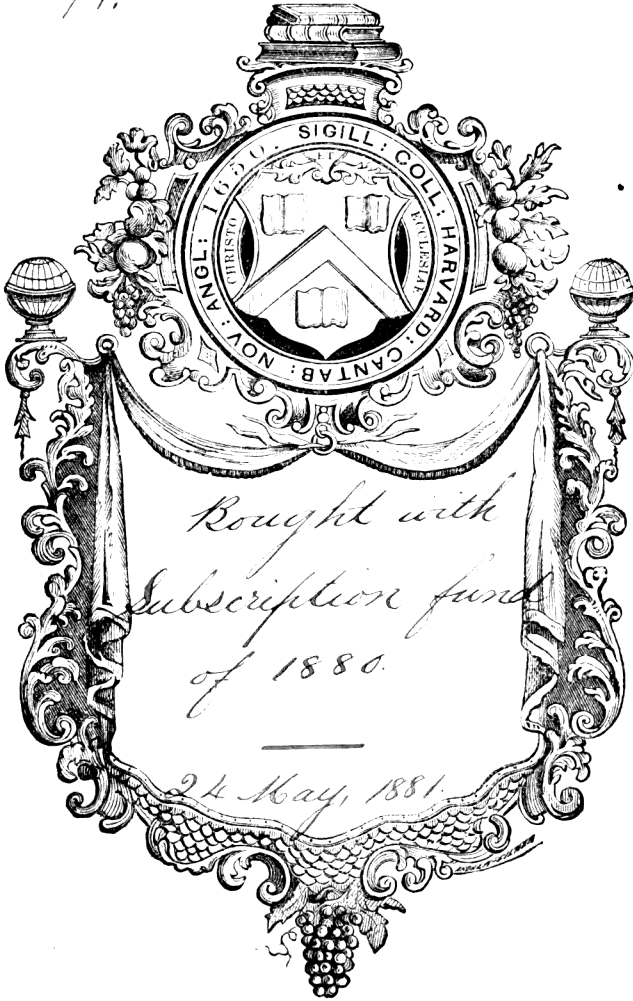 SIGILL: COLL: HARVARD: CANTAB: NOV: ANGL: 1650.
CHRISTO
ET
ECCLESIÆ
Bought with
Subscription fund
of 1880.
24 May, 1881.